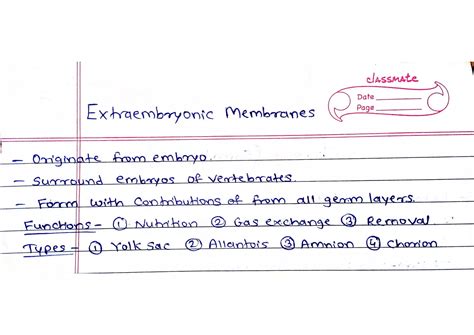 classmate
Date
Page
Extraembryonic Membranes
- Originate from embryo.
- Surround embryos of vertebrates.
- Form with Contributions of from all germ layers.
Functions - ① Nutrition ② Gas exchange ③ Removal
Types - ① Yolk Sac ② Allantois ③ Amnion ④ Chorion